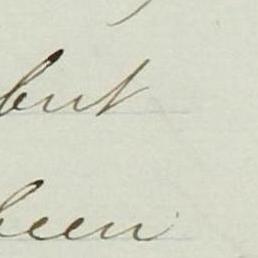 but
been